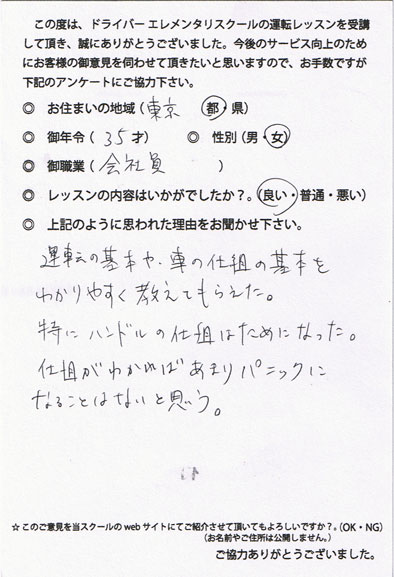 この度は、ドライバー エレメンタリスクールの運転レッスンを受講
して頂き、誠にありがとうございました。今後のサービス向上のため
にお客様の御意見を伺わせて頂きたいと思いますので、お手数ですが
下記のアンケートにご協力下さい。
◎ お住まいの地域（東京 都・県）
◎ 御年令（35才） ◎ 性別（男・女）
◎ 御職業（会社員）
◎ レッスンの内容はいかがでしたか？。（良い・普通・悪い）
◎ 上記のように思われた理由をお聞かせ下さい。
運転の基本や、車の仕組の基本を
わかりやすく教えてもらえた。
特にハンドルの仕組はためになった。
仕組がわかればあまりパニックに
なることはないと思う。
☆このご意見を当スクールのwebサイトにてご紹介させて頂いてもよろしいですか？。（OK・NG）
（お名前やご住所は公開しません。）
ご協力ありがとうございました。